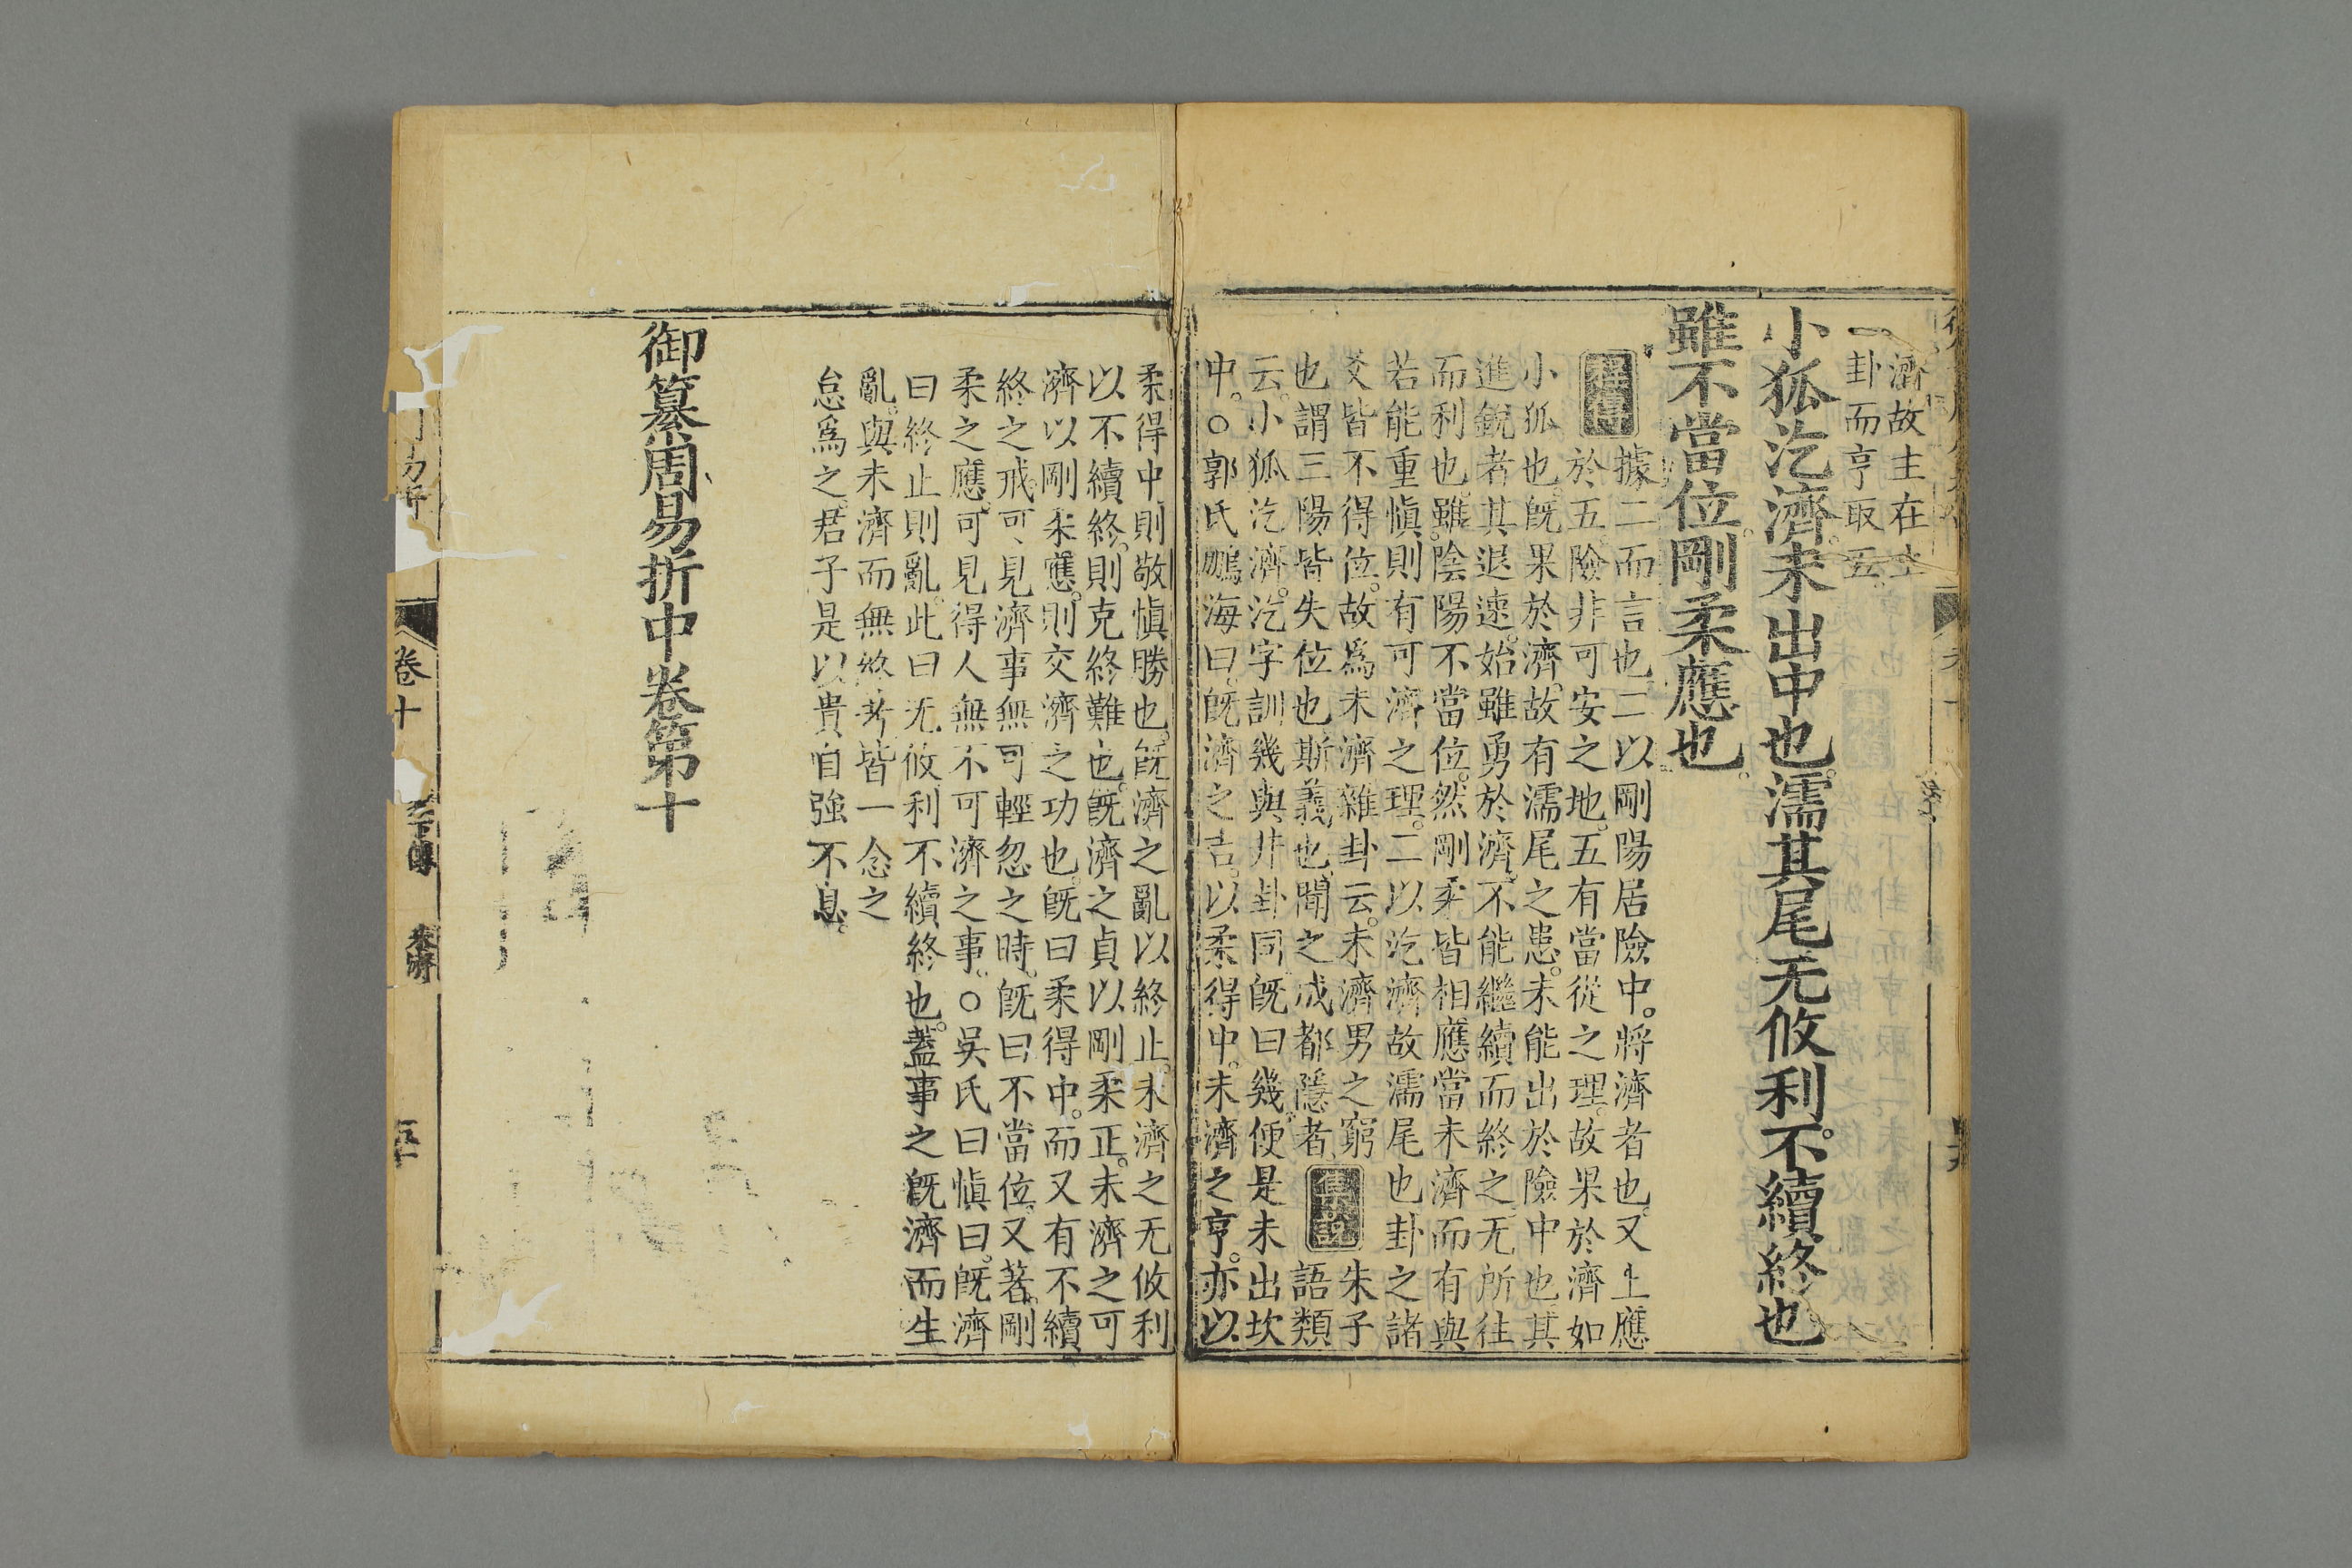 濟故主在
一卦而亨取五
小狐汔濟未出中也濡其尾无攸利不續終也
雖不當位剛柔應也
程傳 據二而言也二以剛陽居險中將濟者也又上應
於五險非可安之地五有當從之理故果於濟如
小狐也旣果於濟故有濡尾之患未能出於險中也其
進銳者其退速始雖勇於濟不能繼續而終之无所往
而利也雖陰陽不當位然剛柔皆相應當未濟而有與
若能重愼則有可濟之理二以汔濟故濡尾也卦之諸
爻皆不得位故爲未濟雜卦云未濟男之窮
也謂三陽皆失位也斯義也聞之成都隱者 集說 朱子語類
云小狐汔濟汔字訓幾與井卦同旣曰幾便是未出坎
中○郭氏鵬海曰旣濟之吉以柔得中未濟之亨亦以
柔得中則敬愼勝也旣濟之亂以終止未濟之无攸利
以不續終則克終難也旣濟之貞以剛柔正未濟之可
濟以剛柔應則交濟之功也旣曰柔得中而又有不續
終之戒可見濟事無可輕忽之時旣曰不當位又著剛
柔之應可見得人無不可濟之事○吳氏曰愼曰旣濟
曰終止則亂此曰无攸利不續終也蓋事之旣濟而生
亂與未濟而無終者皆一念之
怠爲之君子是以貴自強不息
御纂周易折中卷第十
卷十